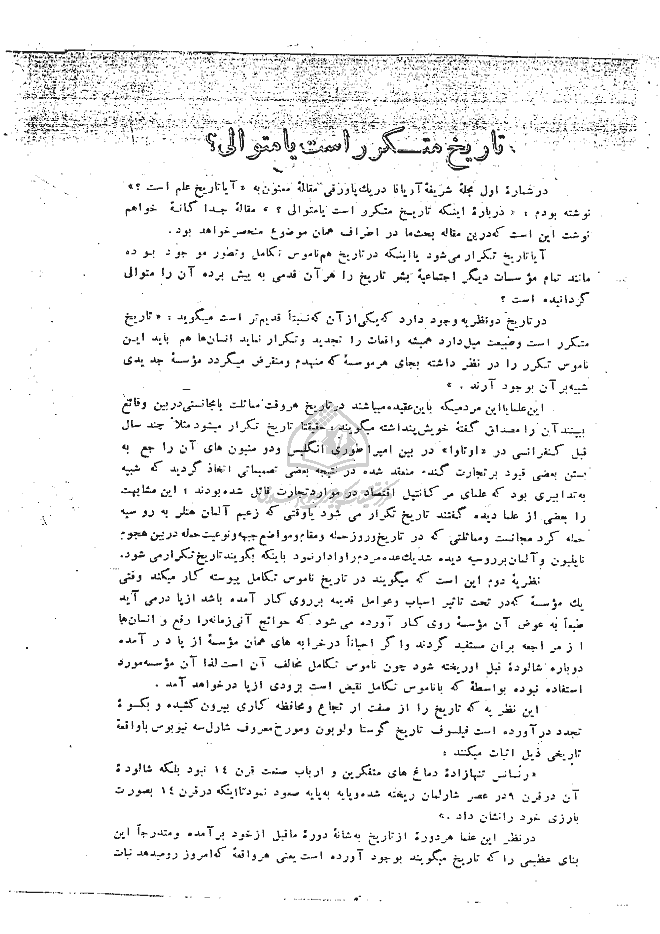 تاریخ متکرر است یا متوالی؟
در شمارهٔ اول مجلهٔ شریفهٔ آریانا در یك پاورقی مقالهٔ معنون به «آیا تاریخ علم است؟»
نوشته بودم: «دربارهٔ اینکه تاریخ متکرر است یا متوالی؟» مقالهٔ جداگانهٔ خواهم
نوشت این است که درین مقاله بحث ما در اطراف همان موضوع منحصر خواهد بود.
آیا تاریخ تکرار می شود یا اینکه در تاریخ هم ناموس تکامل وتطور موجود بوده
مانند تمام مؤسسات دیگر اجتماعیهٔ بشر تاریخ را هر آن قدمی به پیش برده آن را متوالی
گردانیده است؟
در تاریخ دو نظریه وجود دارد که یکی از آن که نسبتاً قدیم تر است میگوید: «تاریخ
متکرر است وطبیعت میل دارد همیشه واقعات را تجدید وتکرار نماید انسان ها هم باید این
ناموس تکرر را در نظر داشته بجای هر موسسهٔ که منهدم ومنقرض میگردد مؤسسهٔ جدیدی
شبیه بر آن بوجود آرند.»
این علما یا این مردمیکه باین عقیده میباشند در تاریخ هر وقت مماثلت یا مجانستی در بین وقائع
ببینند آن را مصداق گفتهٔ خویش پنداشته میگویند: حقیقتاً تاریخ تکرار میشود مثلاً چند سال
قبل کنفرانسی در «اوتاوا» در بین امپراطوری انگلیس ودو منیون های آن را جع به
بستن بعضی قیود بر تجارت گندم منعقد شده در نتیجه بعضی تصمیماتی اتخاذ گردید که شبیه
به تدابیری بود که علمای مرکانتیل اقتصاد در موارد تجارت قائل شده بودند؛ این مشابهت
را بعضی از علما دیده گفتند تاریخ تکرار می شود یا وقتی که زعیم آلمان هتلر به روسیه
حمله کرد مجانست ومماثلتی که در تاریخ وروز حمله ومقام ومواضع جبهه ونوعیت حمله در بین هجوم
ناپلیون و آلمان بر روسیه دیده شد یك عده مردم را وادار نمود باینکه بگویند تاریخ تکرار می شود.
نظریهٔ دوم این است که میگویند در تاریخ ناموس تکامل پیوسته کار میکند وقتی
یك مؤسسهٔ که در تحت تاثیر اسباب وعوامل قدیمه بر روی کار آمده باشد از پا در می آید
طبعاً به عوض آن مؤسسهٔ روی کار آورده می شود که حوائج آنی زمانه را رفع و انسان ها
از مراجعه بر ان مستفید گردند واگر احیاناً در خرابه های همان مؤسسهٔ از پا در آمده
دوباره شالودهٔ قبل اوریخته شود چون ناموس تکامل مخالف آن است لذا آن مؤسسه مورد
استفاده نبوده بواسطهٔ که با ناموس تکامل نقیض است بزودی از پا در خواهد آمد.
این نظریه که تاریخ را از صفت ارتجاع ومحافظه کاری بیرون کشیده و بکسوهٔ
تجدد در آورده است فیلسوف تاریخ گوستا ولوبون ومورخ معروف شارل سه نیوبوس با واقعهٔ
تاریخی ذیل اثبات میکنند:
«رنسانس تنها زادهٔ دماغ های متفکرین و ارباب صنعت قرن ۱۴ نبود بلکه شالودهٔ
آن در قرن ۹ در عصر شارلمان ریخته شده وپایه به پایه صعود نمود تا اینکه در قرن ۱۴ بصورت
بارزی خود را نشان داد.»
در نظر این علما هر دورهٔ از تاریخ به شانهٔ دورهٔ ماقبل از خود بر آمده ومتدرجاً این
بنای عظیمی را که تاریخ میگویند بوجود آورده است یعنی هر واقعهٔ که امروز رو میدهد نبات